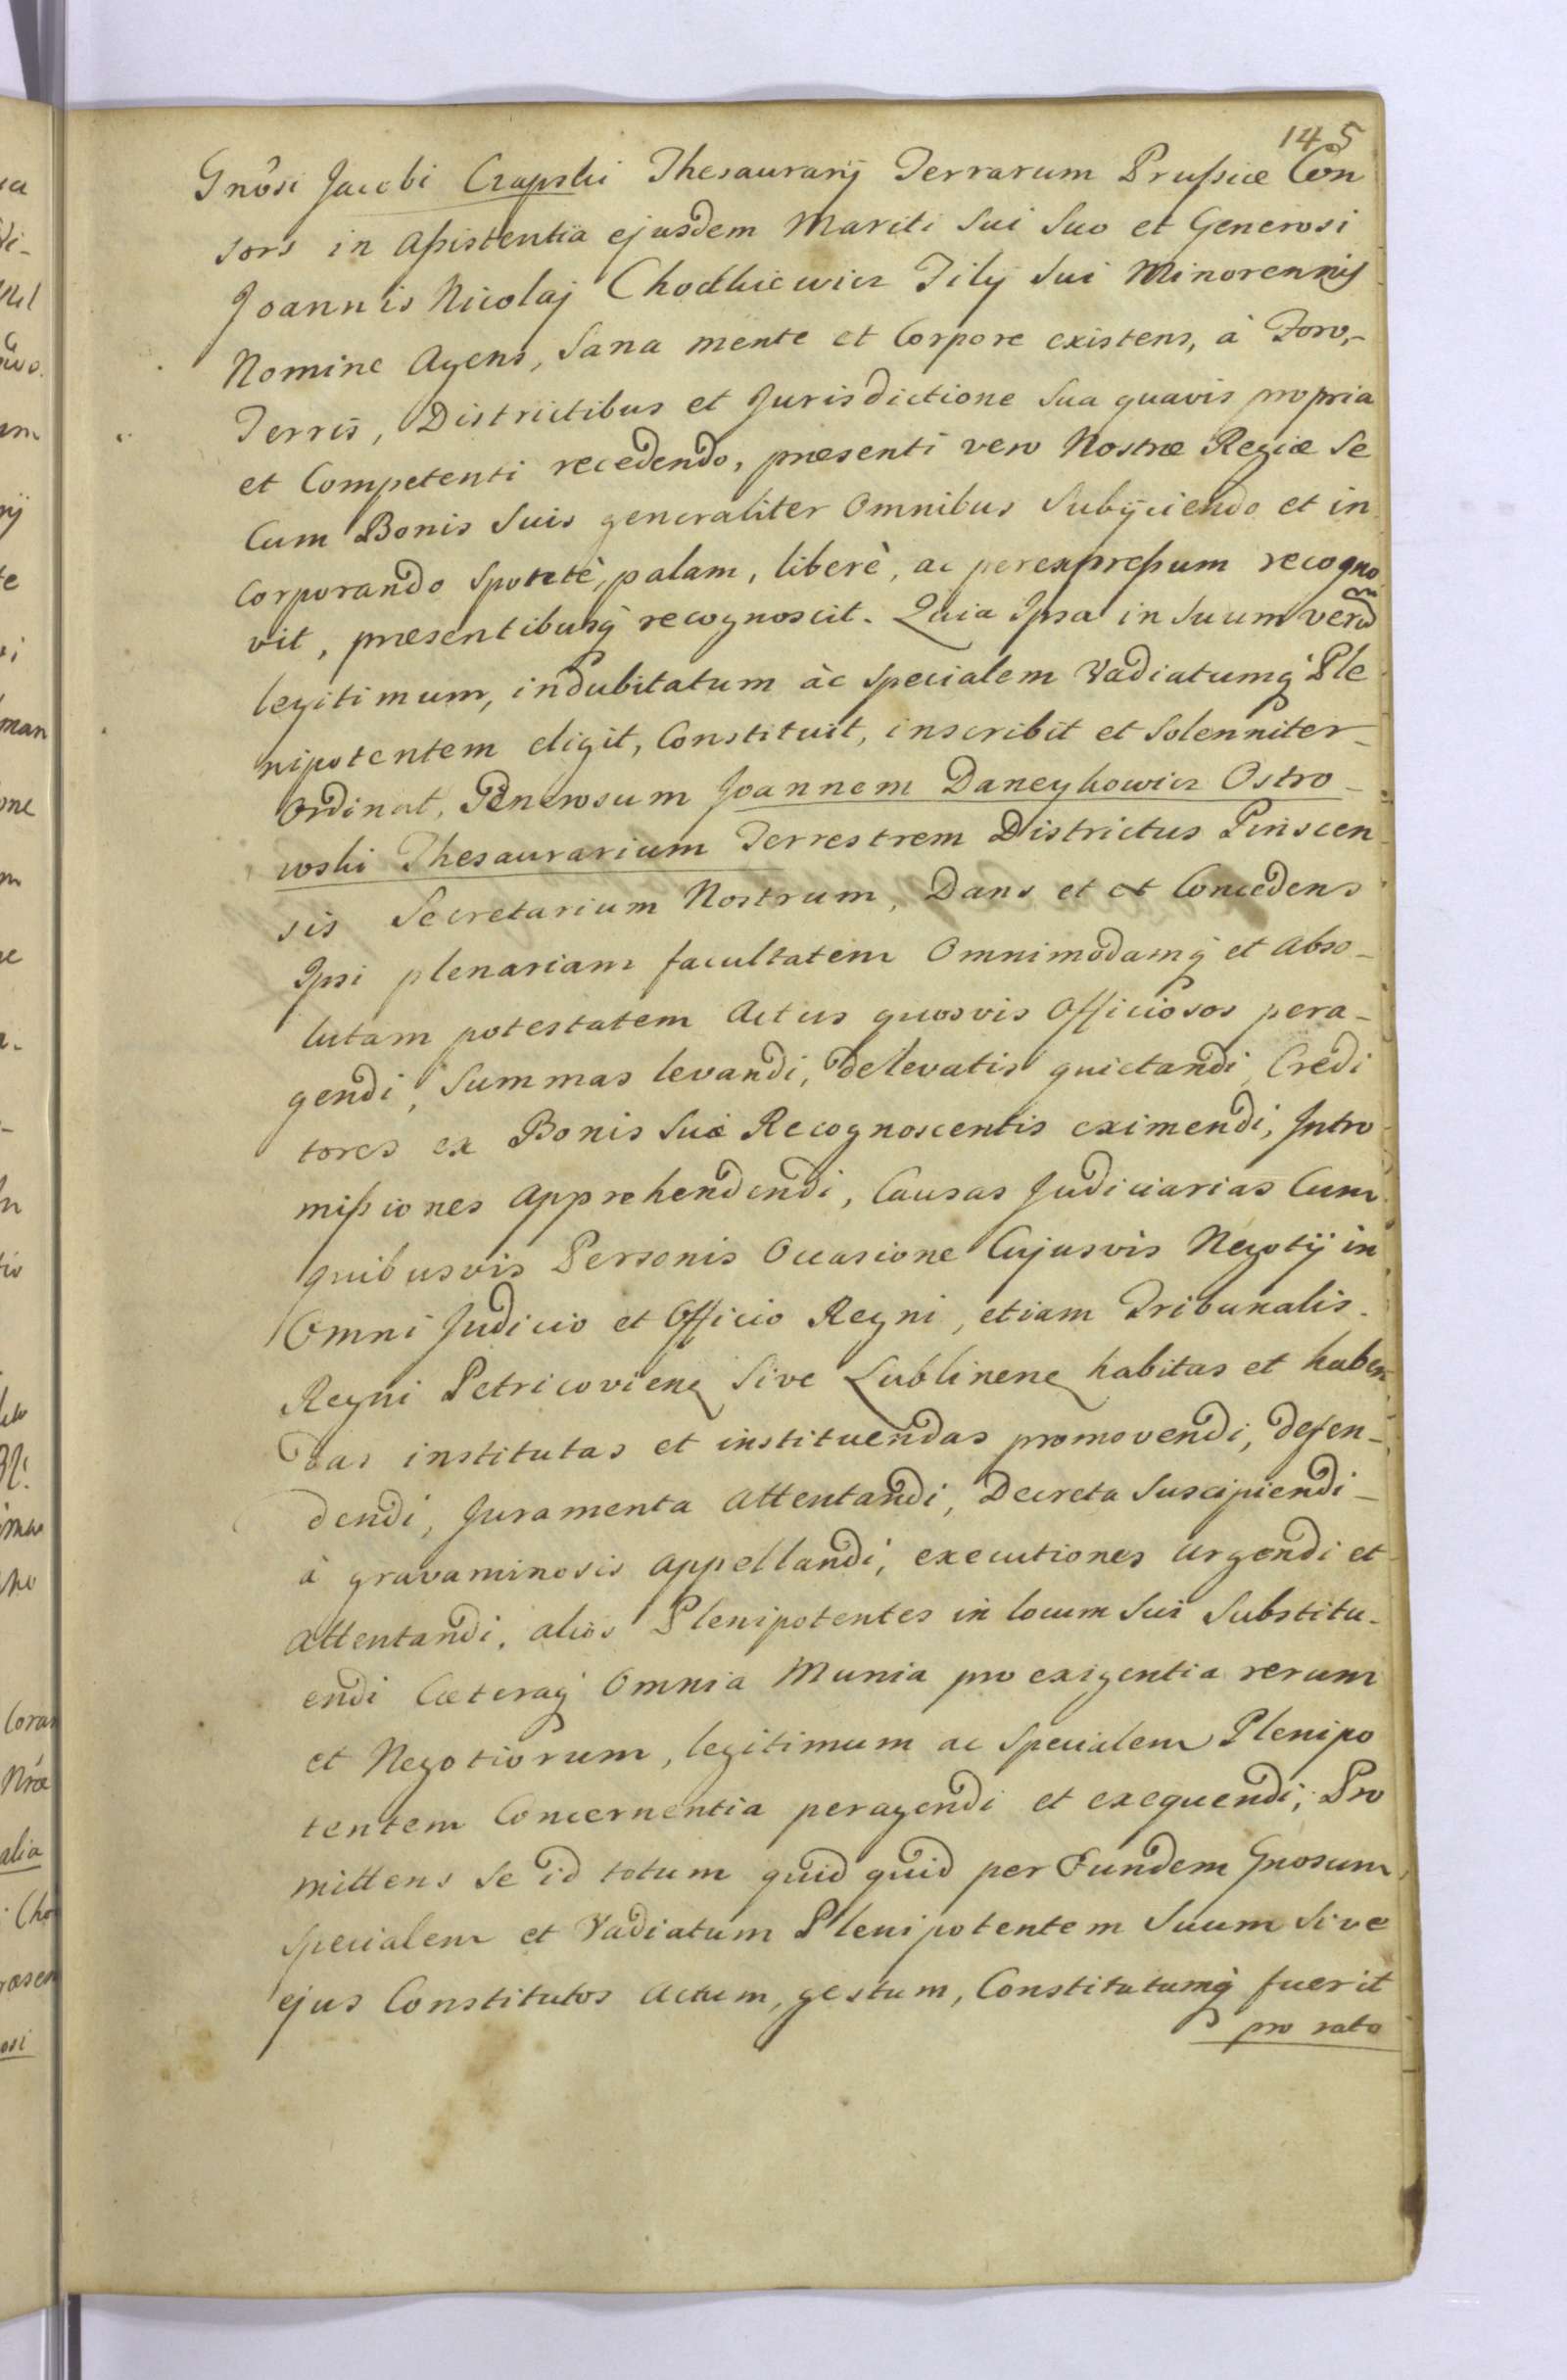 145
Gnôsi Jacobi Czapski Thesaurarij Terrarum Prussiæ Con
sors in Assistentia ejusdem Mariti Sui Suo et Generosi
Joannis Nicolaj Chodkiewicz Filij Sui Minorennis
Nomine Agens, Sana mente et Corpore existens, à Foro,-
Terris, Districtibus et Jurisdictione Sua quavis propria
et Competenti recedendo, præsenti vero Nostræ Regiæ Se
Cum Bonis Suis generaliter Omnibus Subijciendo et in
corporando Sponte, palam, liberè, ac per expressum recogno
vit, præsentibusq recognoscit. Quia Ipsa in Suum verũ
legitimum, indubitatum àc Specialem Vadiatumq Ple
nipotentem eligit, Constituit, inscribit et Solenniter-
Ordinat, Generosum Joannem Daneykowicz Ostro-
wski Thesaurarium Terrestrem Districtus Pinscen
sis Secretarium Nostrum, Dans et et Concedens
Ipsi plenariam facultatem Omnimodamq et Abso-
lutam potestatem Actus quosvis Officiosos pera-
gendi, Summas levandi, delevatis quietandi, Credi
tores ex Bonis Suæ Recognoscentis eximendi, Intro
missiones Apprehendendi, Causas Judiciarias Cum
quibusvis Personis Occasione Cujusvis Negotij in
Omni Judicio et Officio Regni, etiam Tribunalis.
Regni Petricovienę Sive Lublinenę habitas et haben
das institutas et instituendas promovendi, defen-
dendi, Juramenta Attentandi, Decreta Suscipiendi-
à gravaminosis Appellandi, executiones urgendi et
Attentandi, alios Plenipotentes in locum Sui Substitu-
endi Cæteraq Omnia Munia pro exigentia rerum
et Negotiorum, legitimum ac Specialem Plenipo
tentem Concernentia peragendi et exequendi; Pro
mittens Se id totum quid quid per Eundem Gnosum
Specialem et Vadiatum Plenipotentem Suum Sive
ejus Constitutos Actum, gestum, Constitutumq fuerit
pro rato